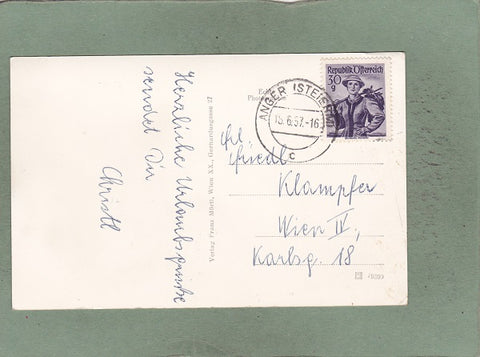 Herzliche Urlaubsgrüße
sendet Dir
Christl
Verlag Franz Mörtl, Wien XX., Gerhardusgasse 27
ANGER (STEIERM.)
15.6.57.-16
c
Republik Österreich
30
g
Frl.
Friedl
Klampfer
Wien IV,
Karlsg. 18